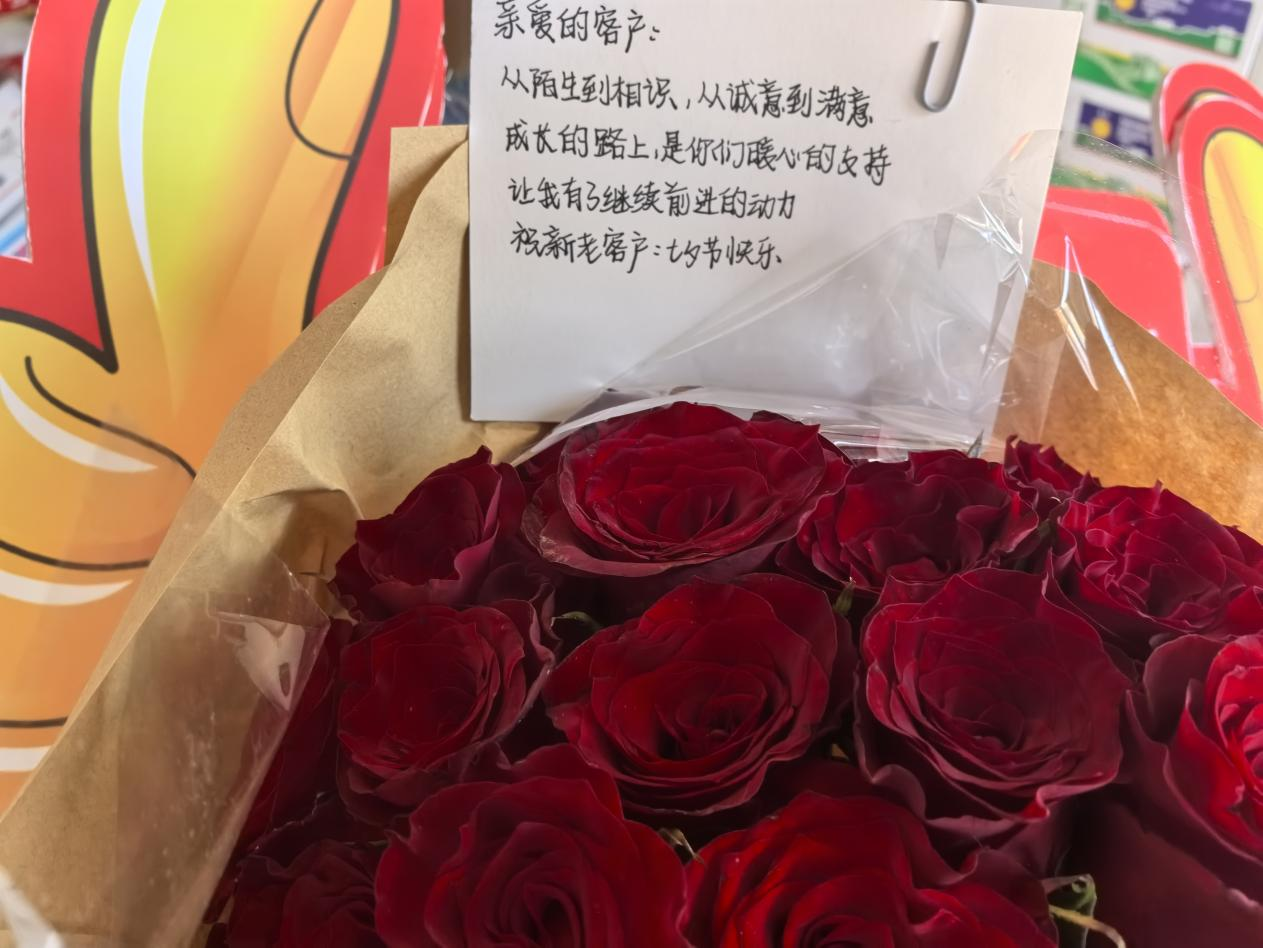 亲爱的客户:
从陌生到相识,从诚意到满意
成长的路上,是你们暖心的支持
让我有了继续前进的动力
祝新老客户:七夕节快乐